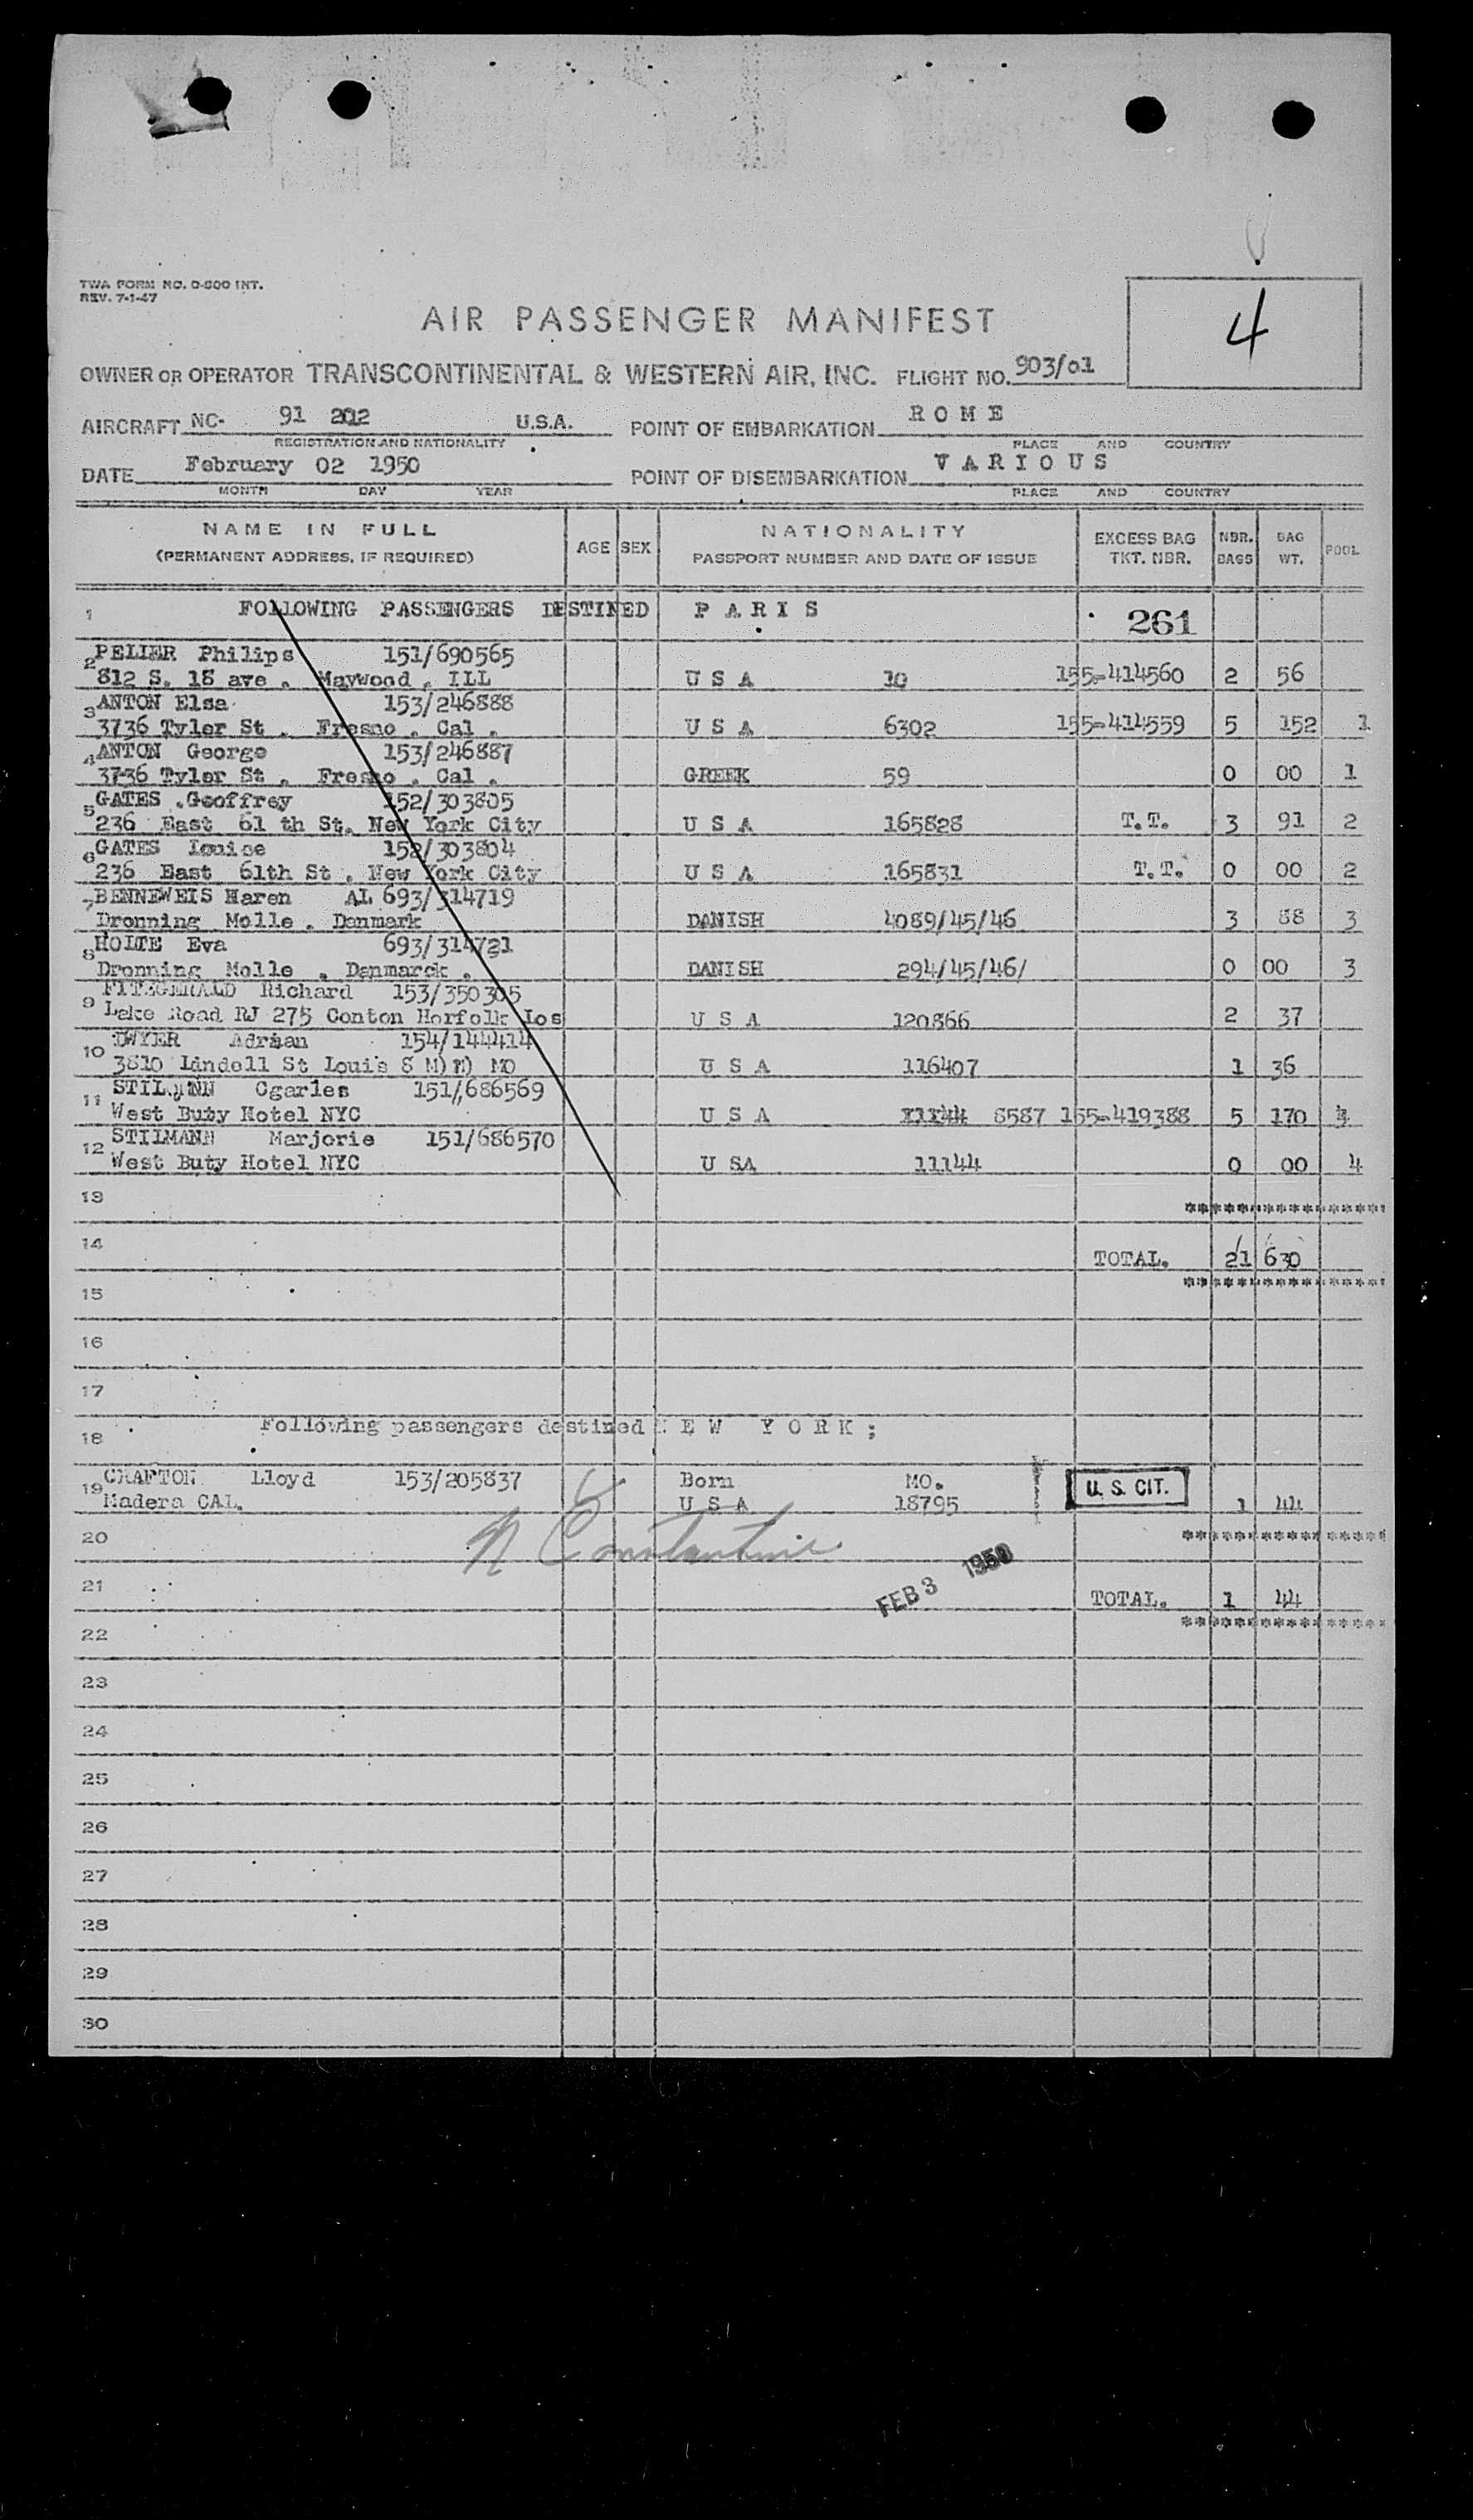 TWA FORM NO. O-800 INT.
REV. 7-1-47
4
AIR PASSENGER MANIFEST
OWNER OR OPERATOR TRANSCONTINENTAL & WESTERN AIR, INC. FLIGHT NO. 903/01
AIRCRAFT NC- 91 202 U.S.A. POINT OF EMBARKATION R O M E
REGISTRATION AND NATIONALITY PLACE AND COUNTRY
DATE February 02 1950 POINT OF DISEMBARKATION V A R I O U S
MONTH DAY YEAR PLACE AND COUNTRY
NAME IN FULL AGE SEX NATIONALITY EXCESS BAG NBR. BAG POOL
(PERMANENT ADDRESS, IF REQUIRED) PASSPORT NUMBER AND DATE OF ISSUE TKT. NBR. BAGS WT.
1 FOLLOWING PASSENGERS DESTINED P A R I S 261
2 PELIER Philips 151/690565
812 S. 18 ave . Maywood . ILL U S A 10 155-414560 2 56
3 ANTON Elsa 153/246888
3736 Tyler St . Fresno . Cal . U S A 6302 155-414559 5 152 1
4 ANTON George 153/246887
3736 Tyler St . Fresno . Cal . GREEK 59 0 00 1
5 GATES .Geoffrey 152/303805
236 East 61 th St. New York City U S A 165828 T.T. 3 91 2
6 GATES Louise 152/303804
236 East 61th St . New York City U S A 165831 T.T. 0 00 2
7 BENNEWEIS Haren AL 693/314719
Dronning Molle . Danmark DANISH 4089/45/46 3 88 3
8 HOLTE Eva 693/314721
Dronning Molle . Danmarck . DANISH 294/45/46/ 0 00 3
9 FITZGERALD Richard 153/350305
Lake Road RJ 275 Conton Norfolk Los U S A 120866 2 37
10 DWYER Adrian 154/144414
3810 Lindell St Louis S M) M) MO U S A 116407 1 36
11 Cgarles 151/686569
West Buty Hotel NYC U S A 11144 8587 155-419388 5 170
12 STILMANN Marjorie 151/686570
West Buty Hotel NYC U SA 11144 0 00 4
13
14 TOTAL. 21 630
15
16
17
18 Following passengers destined N E W Y O R K ;
19 CRAFTON Lloyd 153/205837 Born MO. U. S. CIT.
Madera CAL. U S A 18795 1 44
20 N Constantine
21 FEB 3 1950 TOTAL. 1 44
22
23
24
25
26
27
28
29
30